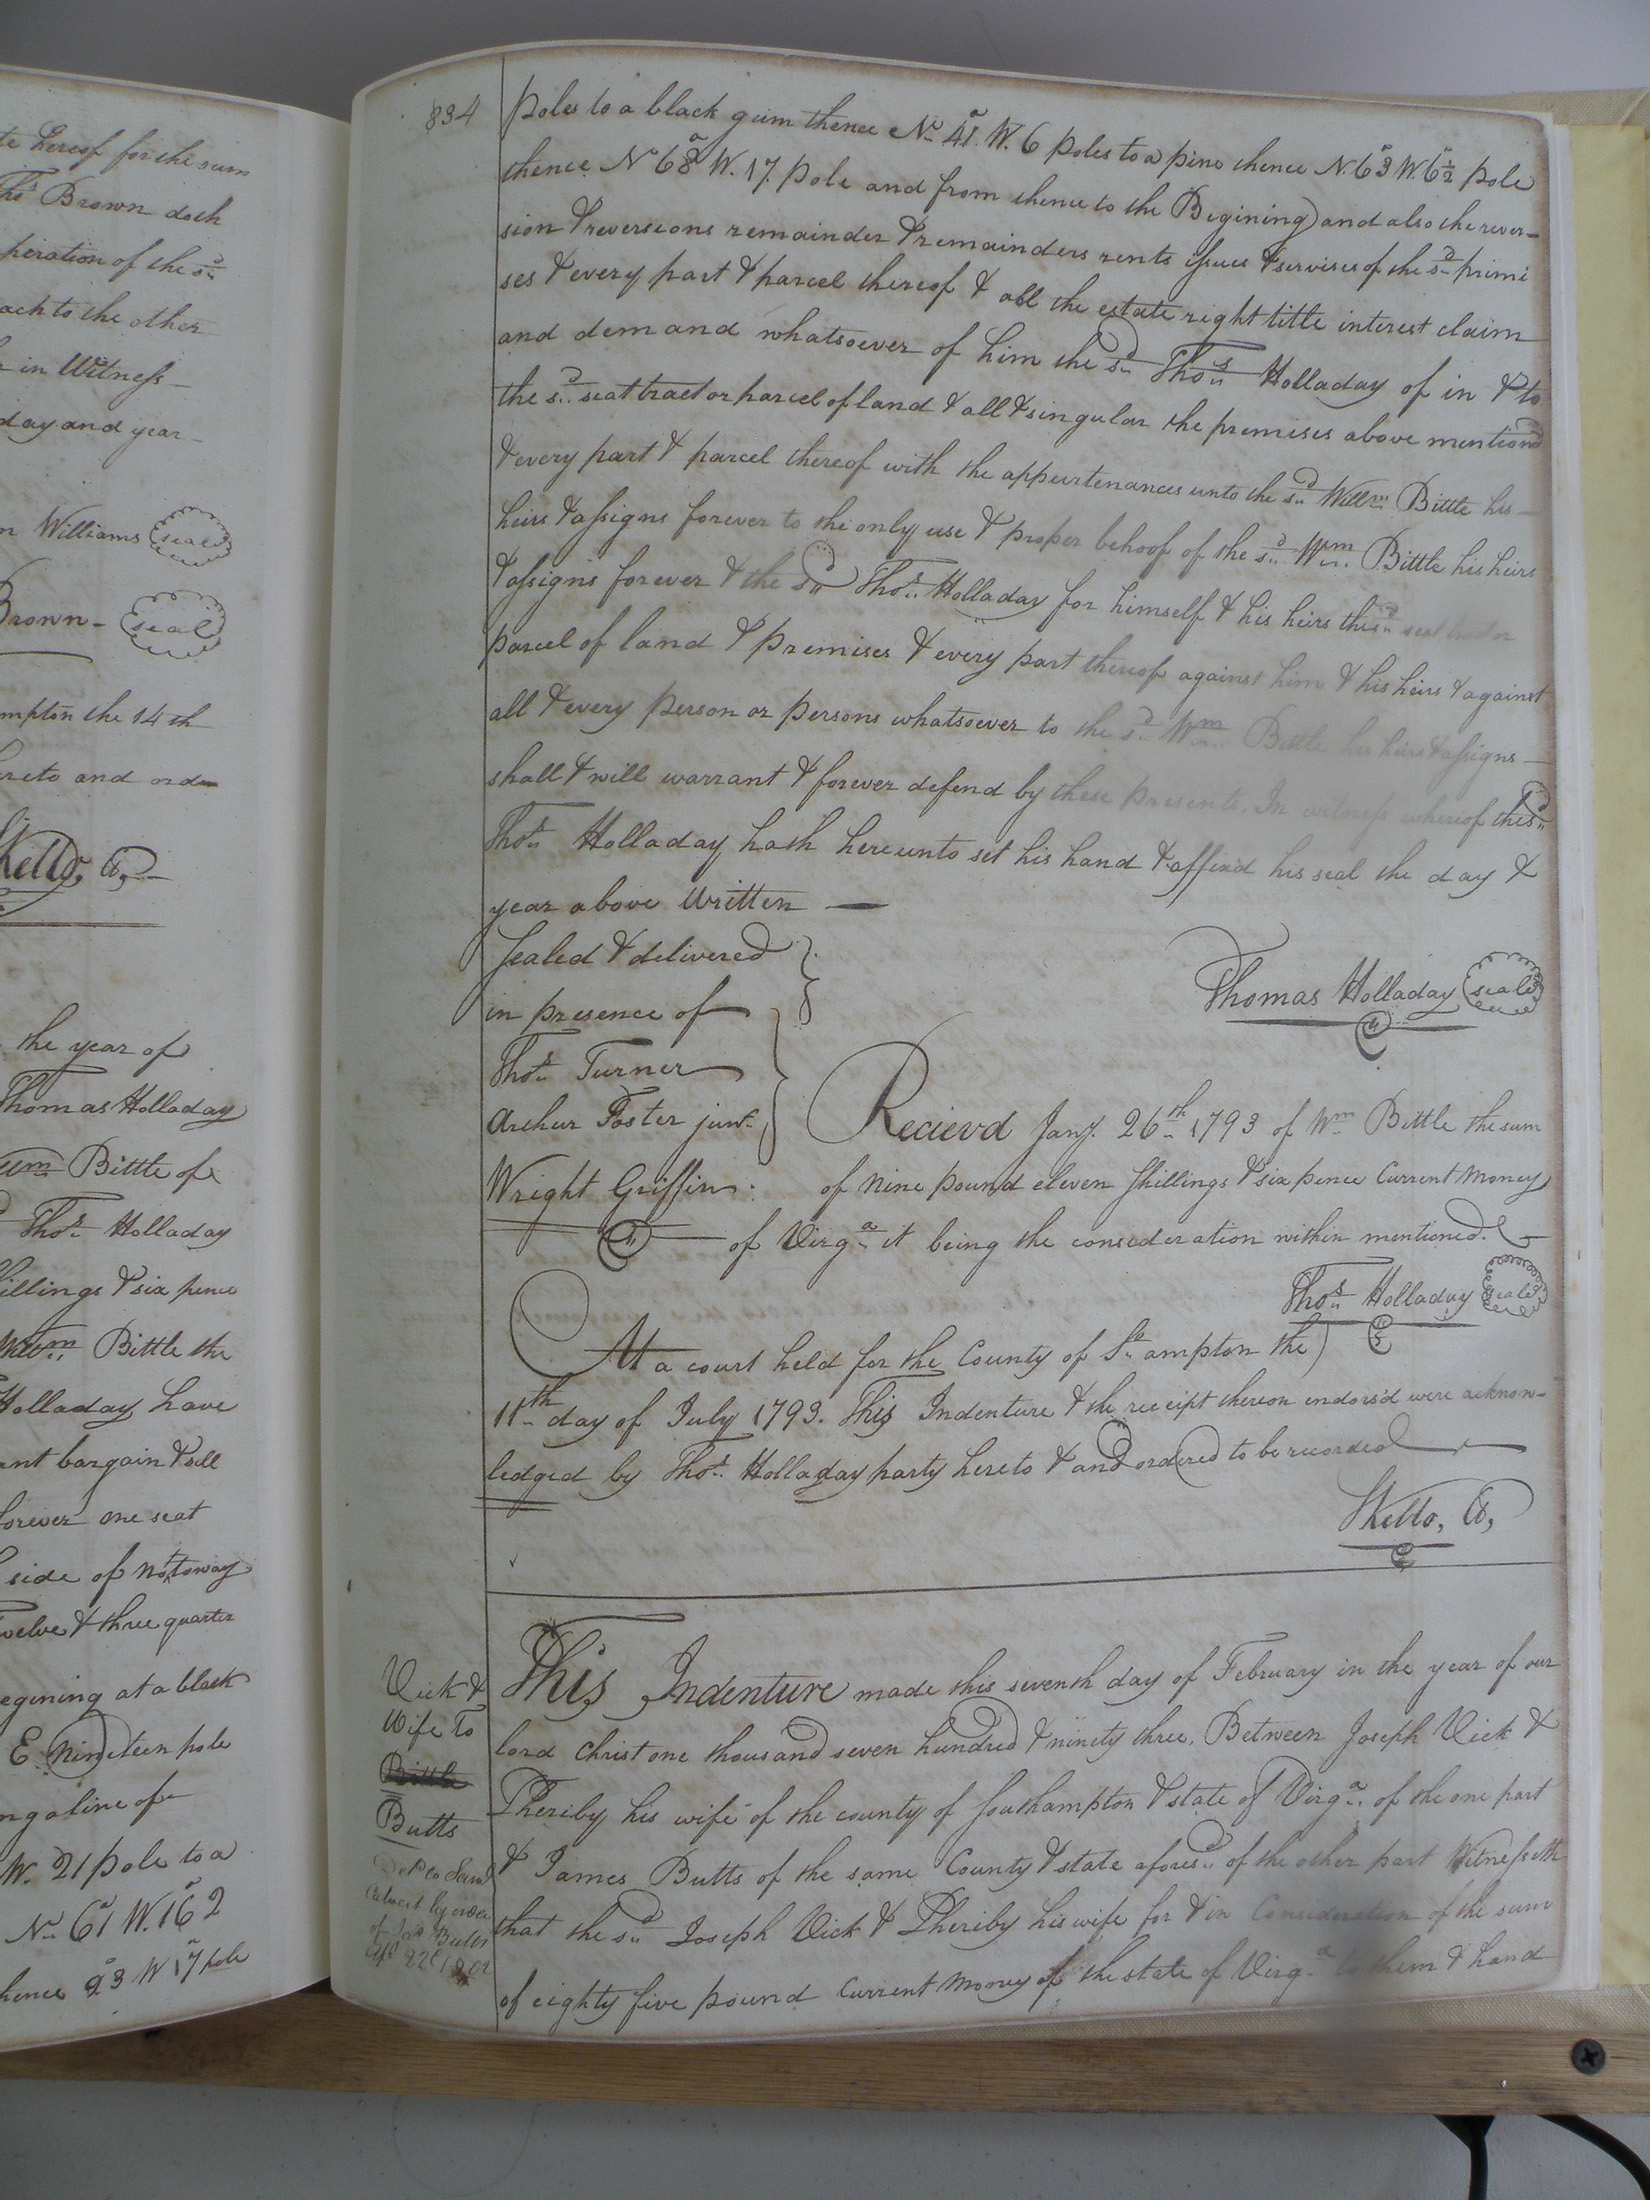 te hereof for the sum
Thos Brown doth
sideration of the sd
each to the other
in Witness
day and year
n Williams seal
Brown seal
mpton the 14th
hereto and orde
SKello, Ct,
the year of
Thomas Holladay
Bittle of
Thos Holladay
illings & six pence
Willm Bittle the
Holladay have
ant bargain & sell
forever one seat
side of Nottoway
Twelve & three quarter
egining at a black
E nineteen pole
ng a line of
W. 21 pole to a
No 61° W. 162
hence 23 W 17 pole
834
poles to a black gum thence No 41° W. 6 poles to a pine thence N. 63° W. 6½ pole
thence N 68° W. 17 pole and from thence to the Begining) and also the rever-
sion & reversions remainder & remainders rents issues & servises of the sd primi
ses & every part & parcel thereof & all the estate right title interest claim
and demand whatsoever of him the sd Thos Holladay of in & to
the sd seat tract or parcel of land & all & singular the premises above mentiond
& every part & parcel thereof with the appurtenances unto the sd Willm Bittle his
heirs & assigns forever to the only use & proper behoof of the sd Wm Bittle his heirs
& assigns forever & the sd Thos Holladay for himself & his heirs the sd seat tract or
parcel of land & premises & every part thereof against him & his heirs & against
all & every person or persons whatsoever to the sd Wm Bittle his heirs & assigns
shall & will warrant & forever defend by these presents. In witness whereof the sd
Thos Holladay hath hereunto set his hand & affixd his seal the day &
year above Written
Sealed & delivered
in presence of
Thomas Holladay seal
Thos Turner
Arthur Foster junr
Wright Griffin
Recievd Jany. 26th 1793 of Wm Bittle the sum
of Nine pound eleven Shillings & six pence Current Money
of Virga it being the consideration within mentioned.
Thos Holladay seal
At a court held for the County of So ampton the
11th day of July 1793. This Indenture & the receipt thereon endorsd were acknow-
ledged by Thos Holladay party hereto & and ordered to be recorded
SKello, Ct,
Vick &
Wife To
Bittle
Butts
Deld to Saml
Calvert by order
of Jas Butts
This Indenture made this seventh day of February in the year of our
lord Christ one thousand seven hundred & ninety three. Between Joseph Vick &
Pheriby his wife of the county of Southampton & state of Virga. of the one part
& James Butts of the same County & state aforesd of the other part Witnesseth
that the sd Joseph Vick & Pheriby his wife for & in Consideration of the sum
of eighty five pound Current Money of the state of Virga to them & hand